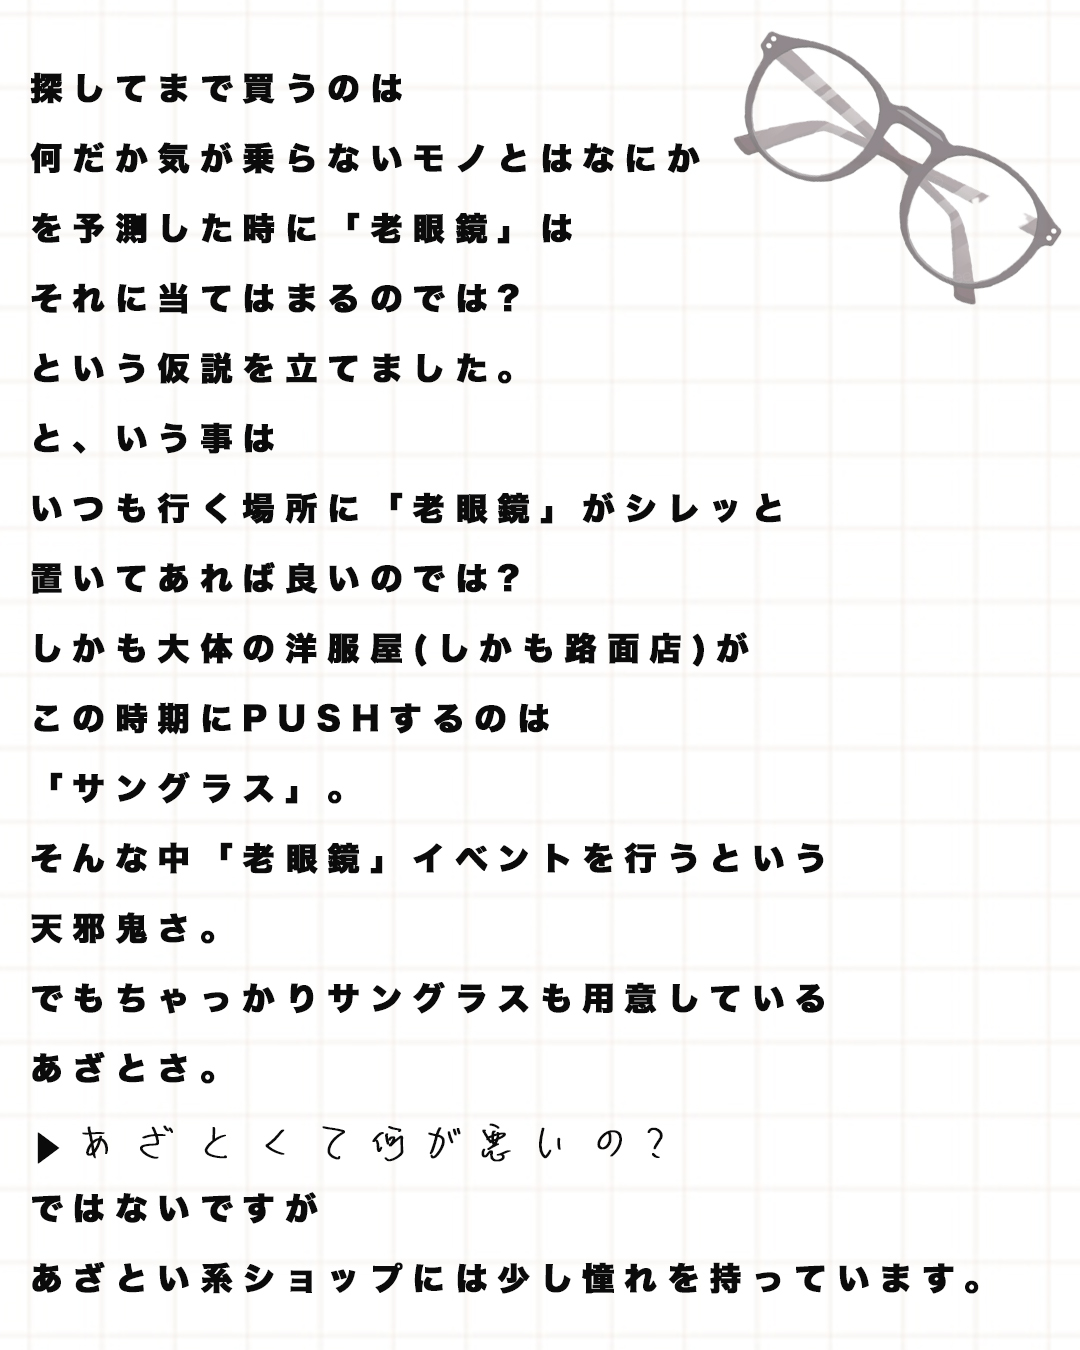 探してまで買うのは
何だか気が乗らないモノとはなにか
を予測した時に「老眼鏡」は
それに当てはまるのでは?
という仮説を立てました。
と、いう事は
いつも行く場所に「老眼鏡」がシレッと
置いてあれば良いのでは?
しかも大体の洋服屋(しかも路面店)が
この時期にPUSHするのは
「サングラス」。
そんな中「老眼鏡」イベントを行うという
天邪鬼さ。
でもちゃっかりサングラスも用意している
あざとさ。
▶あざとくて何が悪いの?
ではないですが
あざとい系ショップには少し憧れを持っています。